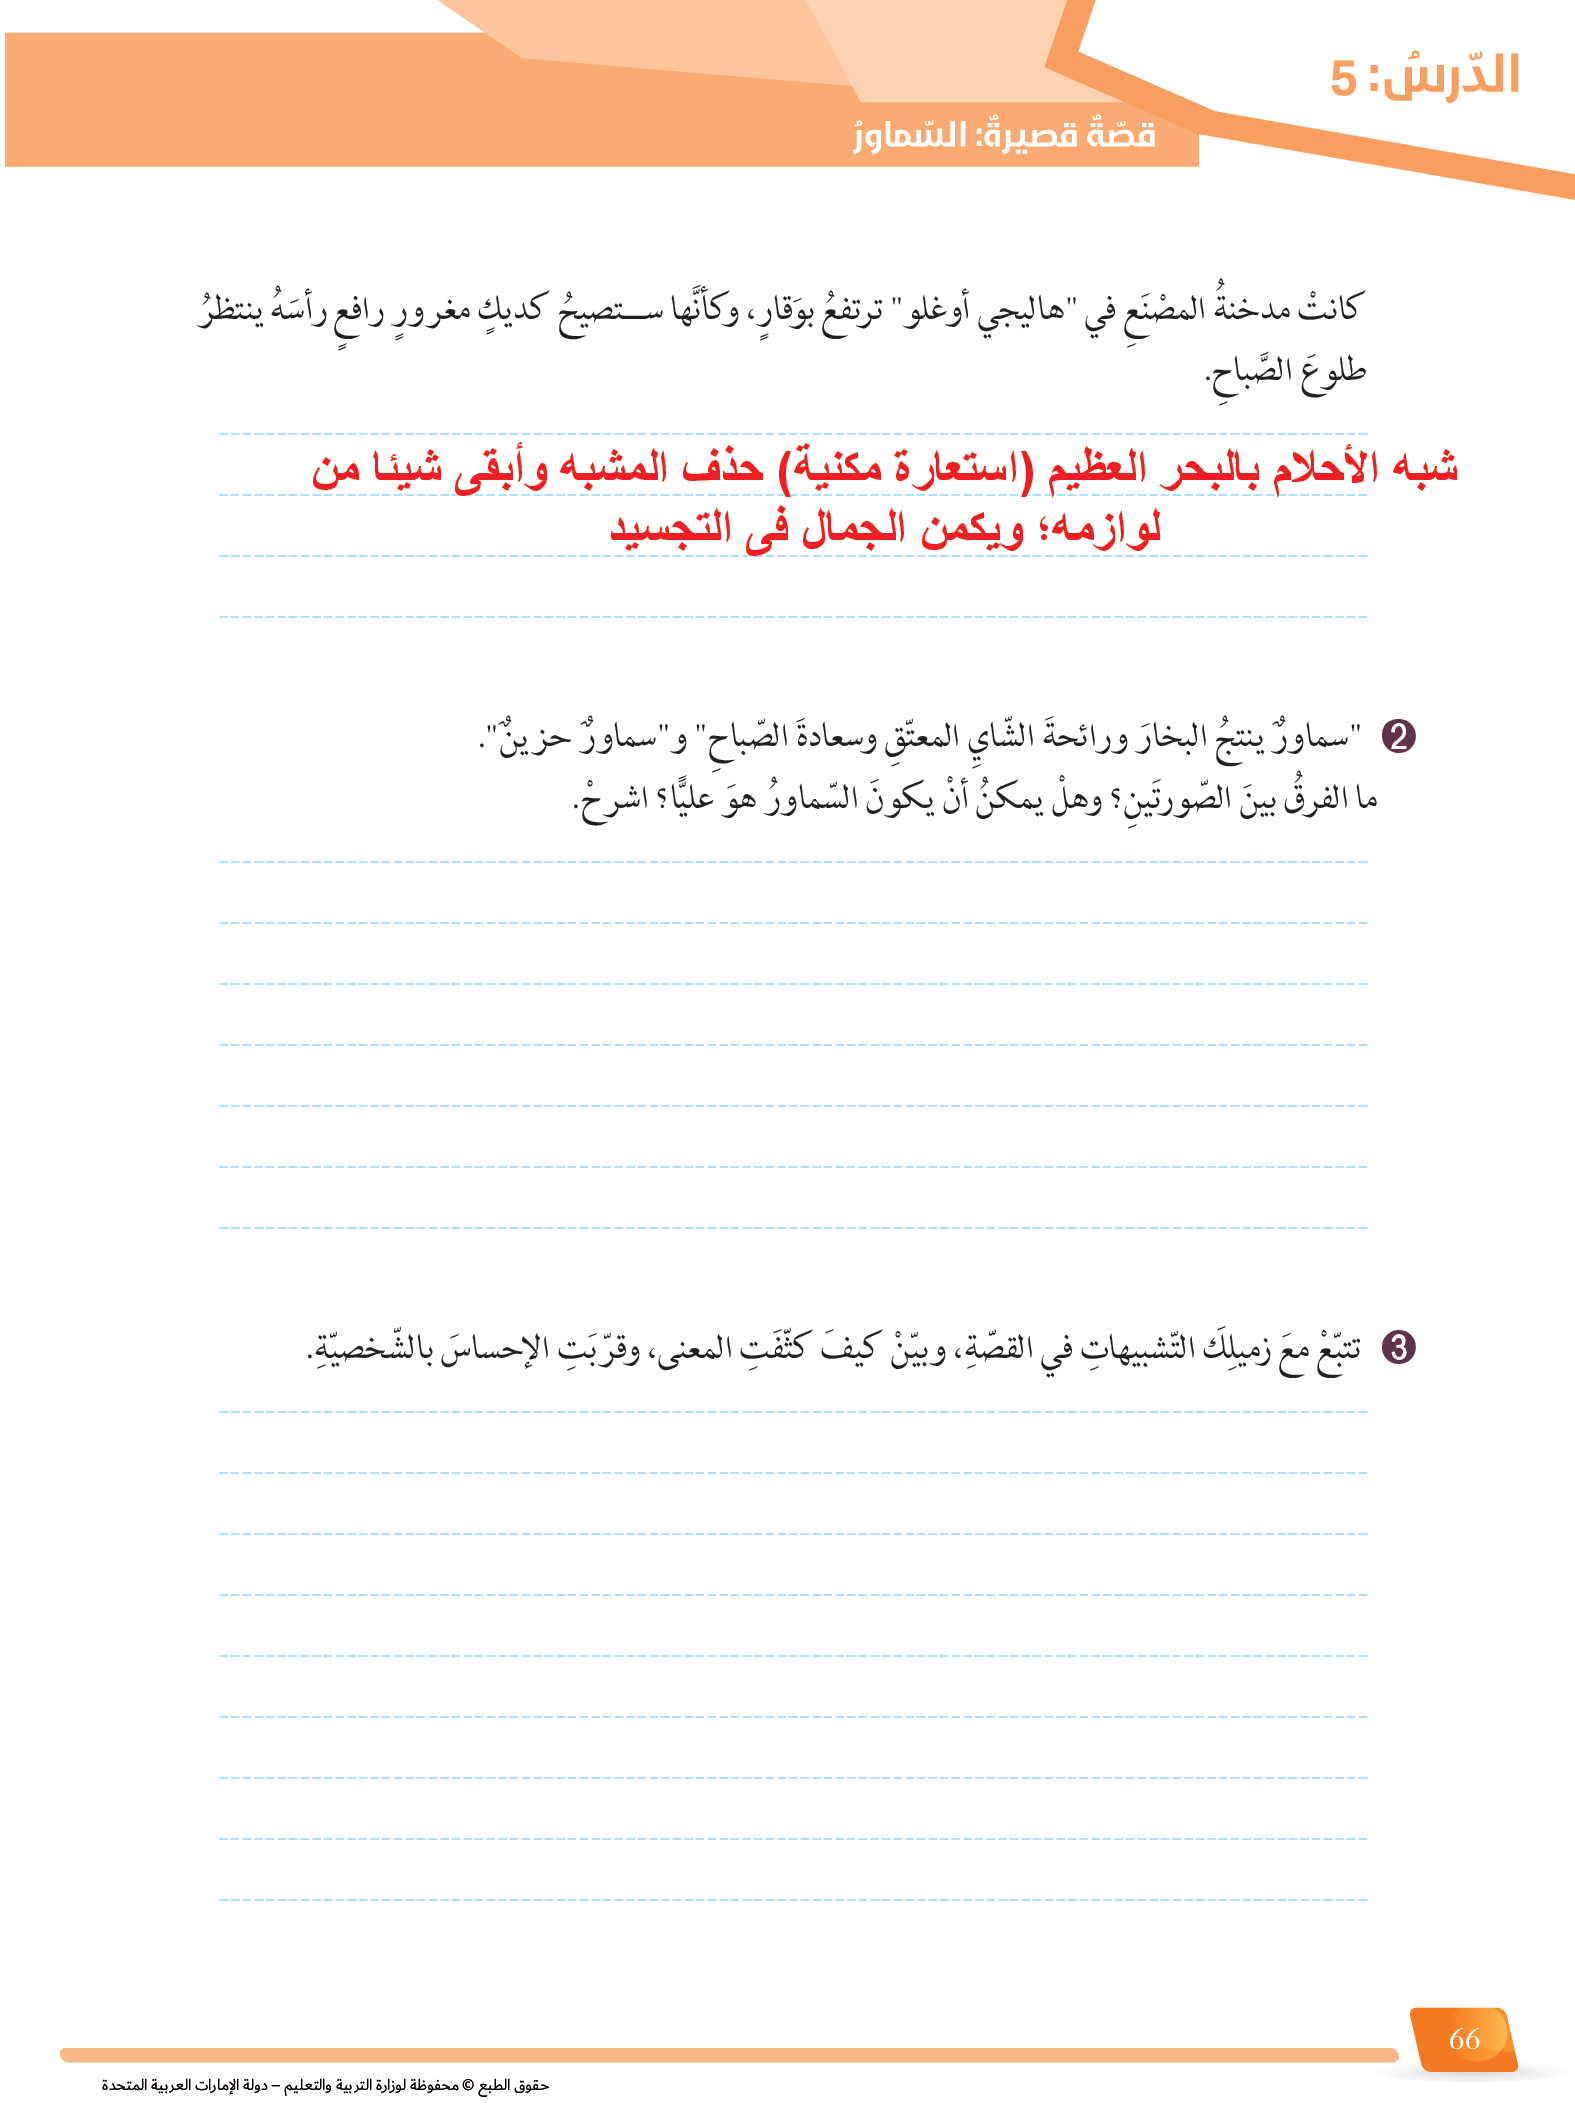 الدّرسُ: 5
قصّةٌ قصيرةٌ: السّماورُ
كانتْ مدخنةُ المصْنَعِ في "هاليجي أوغلو" ترتفعُ بوَقارٍ، وكأنَّها ســتصيحُ كديكٍ مغرورٍ رافعٍ رأسَهُ ينتظرُ
طلوعَ الصَّباحِ.
شبه الأحلام بالبحر العظيم (استعارة مكنية) حذف المشبه وأبقى شيئا من
لوازمه؛ ويكمن الجمال فى التجسيد
2 "سماورٌ ينتجُ البخارَ ورائحةَ الشّايِ المعتّقِ وسعادةَ الصّباحِ" و"سماورٌ حزينٌ".
ما الفرقُ بينَ الصّورتَينِ؟ وهلْ يمكنُ أنْ يكونَ السّماورُ هوَ عليًّا؟ اشرحْ.
3 تتبّعْ معَ زميلِكَ التّشبيهاتِ في القصّةِ، وبيّنْ كيفَ كثّفَتِ المعنى، وقرّبَتِ الإحساسَ بالشّخصيّةِ.
66
حقوق الطبع © محفوظة لوزارة التربية والتعليم – دولة الإمارات العربية المتحدة